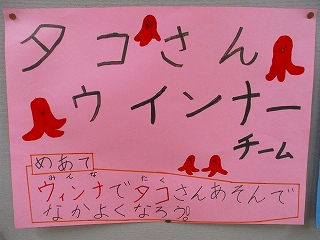 タコさん
ウインナー
チーム
めあて
みんな たく
ウィンナでタコさんあそんで
なかよくなろう!